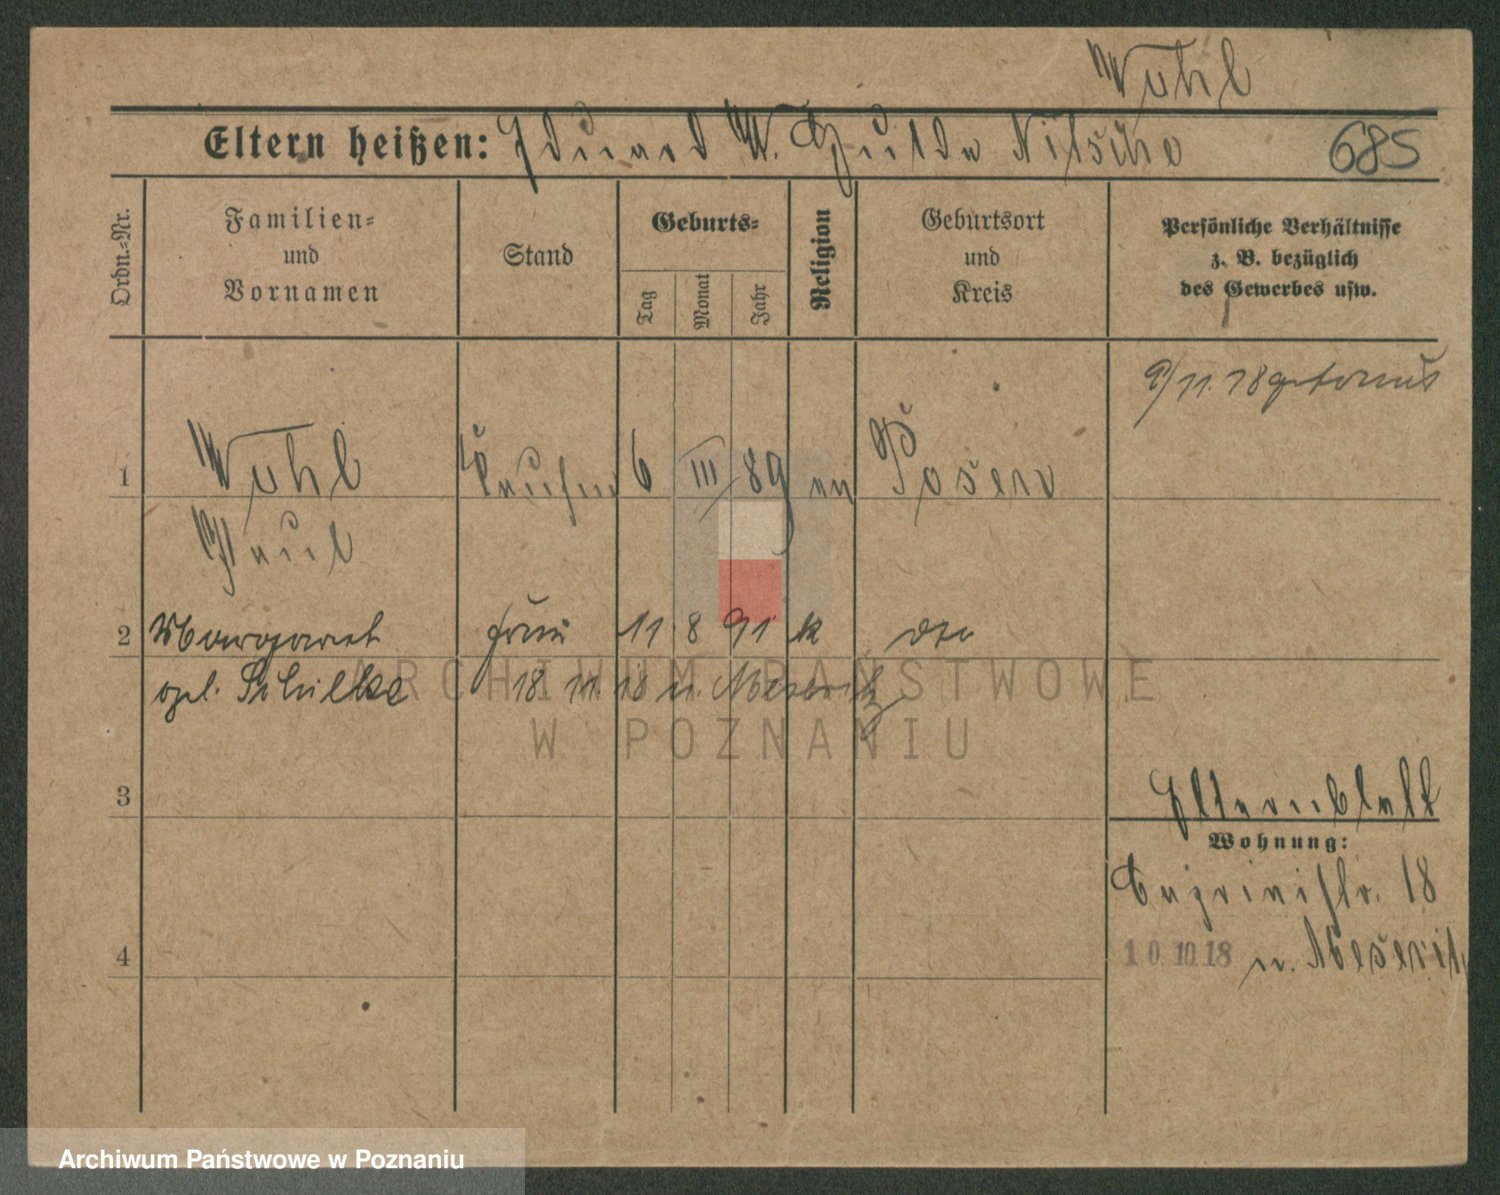 Wuhl
Eltern heißen: Eduard W. Hulda Nitsche 685
Ordn.-Nr.
Familien- und Vornamen
Stand
Geburts-
Tag
Monat
Jahr
Religion
Geburtsort und Kreis
Persönliche Verhältnisse z. B. bezüglich des Gewerbes usw.
9/11.18 getraut
1 Wuhl Kaufm 6 III 89 ev Posen
Paul
2 Margaret Frau 11 8 91 k dto
geb. Schulke 18 11. 18 n. Meseritz
3
Elternblatt
Wohnung:
18
4
10.10.18 n. Meseritz
ARCHIWUM PAŃSTWOWE
W POZNANIU
Archiwum Państwowe w Poznaniu